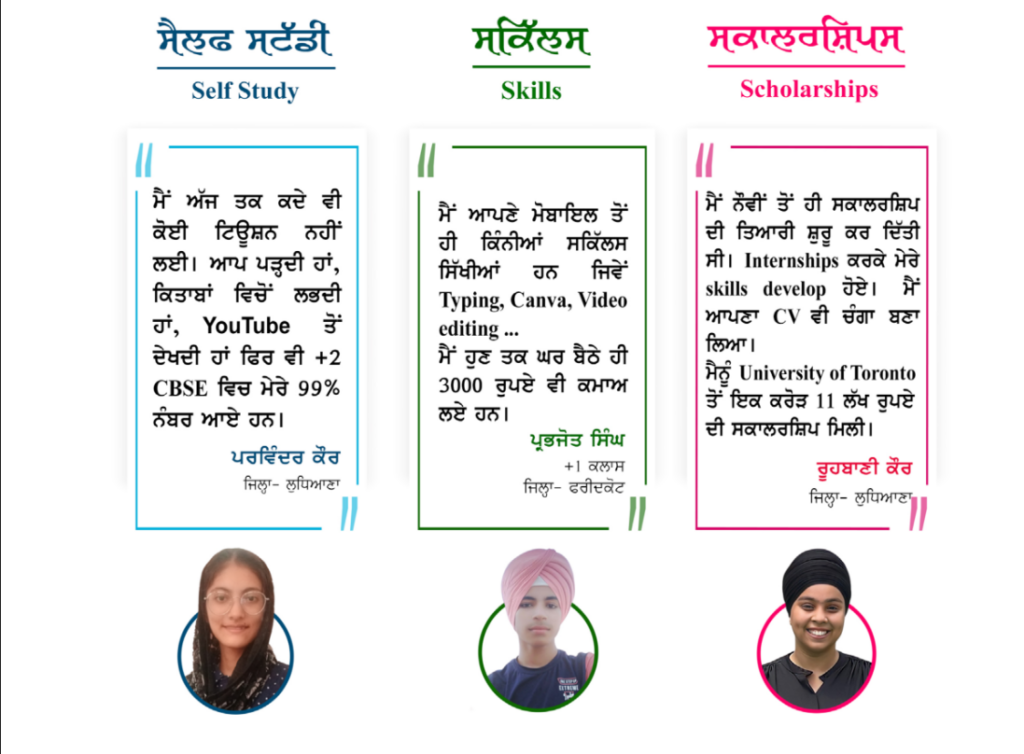 ਸੈਲਫ ਸਟੱਡੀ
Self Study
ਮੈਂ ਅੱਜ ਤਕ ਕਦੇ ਵੀ
ਕੋਈ ਟਿਊਸ਼ਨ ਨਹੀਂ
ਲਈ। ਆਪ ਪੜ੍ਹਦੀ ਹਾਂ,
ਕਿਤਾਬਾਂ ਵਿਚੋਂ ਲਭਦੀ
ਹਾਂ, YouTube ਤੋਂ
ਦੇਖਦੀ ਹਾਂ ਫਿਰ ਵੀ +2
CBSE ਵਿਚ ਮੇਰੇ 99%
ਨੰਬਰ ਆਏ ਹਨ।
ਪਰਵਿੰਦਰ ਕੌਰ
ਜਿਲ੍ਹਾ- ਲੁਧਿਆਣਾ
ਸਕਿੱਲਸ
Skills
ਮੈਂ ਆਪਣੇ ਮੋਬਾਇਲ ਤੋਂ
ਹੀ ਕਿੰਨੀਆਂ ਸਕਿੱਲਸ
ਸਿੱਖੀਆਂ ਹਨ ਜਿਵੇਂ
Typing, Canva, Video
editing ...
ਮੈਂ ਹੁਣ ਤਕ ਘਰ ਬੈਠੇ ਹੀ
3000 ਰੁਪਏ ਵੀ ਕਮਾਅ
ਲਏ ਹਨ।
ਪ੍ਰਭਜੋਤ ਸਿੰਘ
+1 ਕਲਾਸ
ਜਿਲ੍ਹਾ- ਫਰੀਦਕੋਟ
ਸਕਾਲਰਸ਼ਿਪਸ
Scholarships
ਮੈਂ ਨੌਵੀਂ ਤੋਂ ਹੀ ਸਕਾਲਰਸ਼ਿਪ
ਦੀ ਤਿਆਰੀ ਸ਼ੁਰੂ ਕਰ ਦਿੱਤੀ
ਸੀ। Internships ਕਰਕੇ ਮੇਰੇ
skills develop ਹੋਏ। ਮੈਂ
ਆਪਣਾ CV ਵੀ ਚੰਗਾ ਬਣਾ
ਲਿਆ।
ਮੈਨੂੰ University of Toronto
ਤੋਂ ਇਕ ਕਰੋੜ 11 ਲੱਖ ਰੁਪਏ
ਦੀ ਸਕਾਲਰਸ਼ਿਪ ਮਿਲੀ।
ਰੂਹਬਾਣੀ ਕੌਰ
ਜਿਲ੍ਹਾ- ਲੁਧਿਆਣਾ